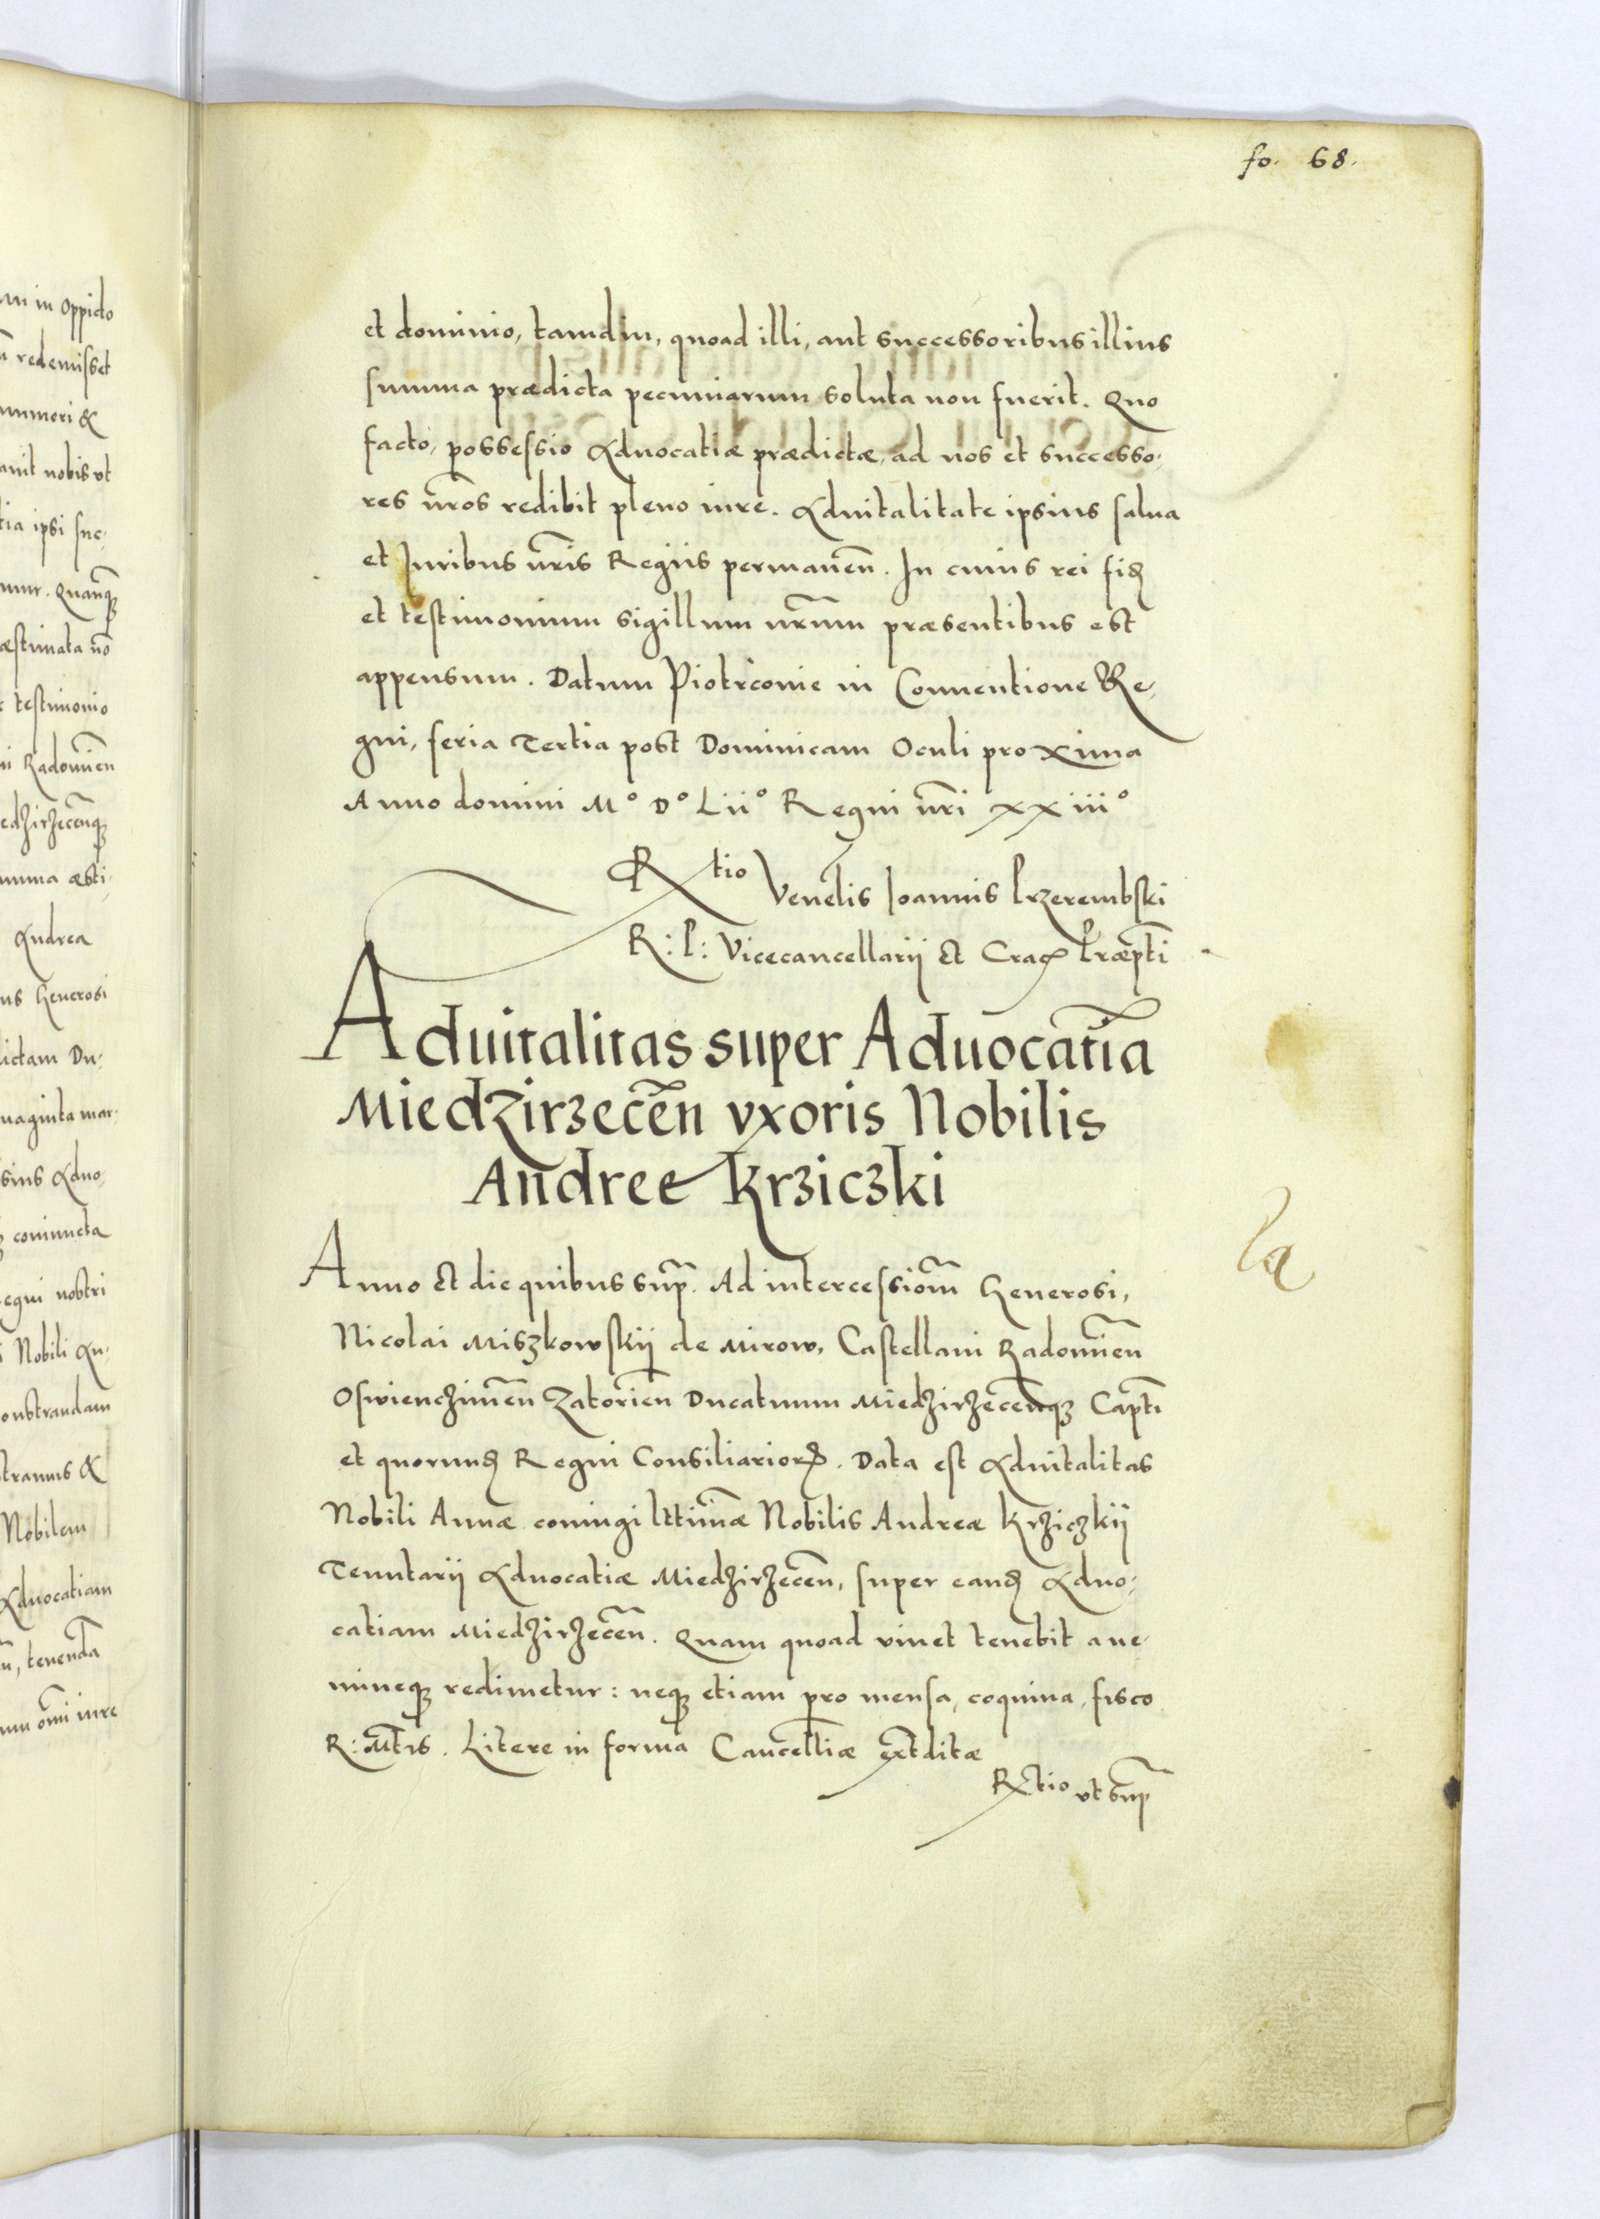 mi in Oppido
redemisset
numeri &
auit nobis vt
tia ipsi suc-
mur. Quanq̃
æstimata nõ
testimonio
ni Radomien̄
edzirzecen̄q̃
umma æsti-
Andrea
us Generosi
dictam Du-
uaginta mar-
sius Aduo-
coniuncta
egni nostri
Nobili An-
onstrandam
stramus &
Nobilem
Aduocatiam
tenenda
um om̃i iure
fo. 68.
et dominio, tamdiu, quoad illi, aut successoribus illius
summa prædicta pecuniarum soluta non fuerit. Quo
facto, possessio Aduocatiæ prædictæ, ad nos et successo-
res nr̃os redibit pleno iure. Aduitalitate ipsius salua
et Juribus nr̃is Regiis permanen̄. In cuius rei fid̄
et testimonium sigillum nr̃um præsentibus est
appensum. Datum Piotrconie in Conuentione Re-
gni, feria Tertia post Dominicam Oculi proxima
Anno domini Mº Dº Lijº Regni nr̃i xxiijº
Rtio Venelis Joannis Przerembski
R: P: Vicecancellarij et Crac̄ Præpti
Aduitalitas super Aduocatia
Miedzirzecen̄ vxoris Nobilis
Andree Krziczki
Anno et die quibus sup̃. Ad intercessiom̃ Generosi,
Nicolai Miszkowskij de Mirow, Castellani Radomien̄
Oswienczimen̄ Zatorien̄ Ducatuum Miedzirzecen̄q̃ Capti
et quorund̄ Regni Consiliarior̃. Data est Aduitalitas
Nobili Annæ coniugi lttimæ Nobilis Andreæ Krziczkij
Tenutarij Aduocatiæ Miedzirzecen̄, super eand̄ Aduo-
catiam Miedzirzecen̄. Quam quoad viuet tenebit a ne-
mineq̃ redimetur: neq̃ etiam pro mensa, coquina, fisco
R: Mt̃is. Litere in forma Cancelliæ extditæ
Rtio vt sup̃